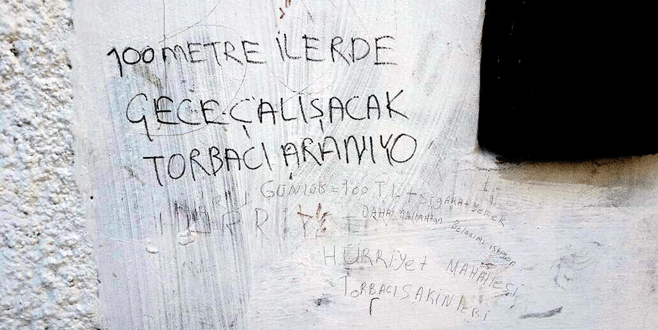 100 METRE İLERDE
GECE ÇALIŞACAK
TORBACI ARANIYO
GÜNLÜK = 100 TL + SİGARA + YEMEK
HÜRRİYet MAHALlESİ
TORBACI SAKİNLERİ